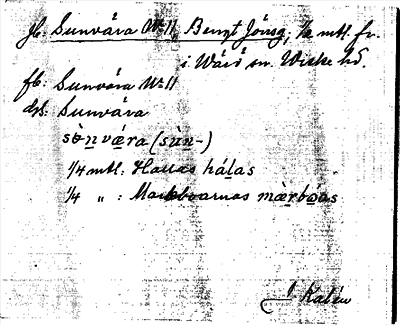 jb. Sunvära No 11, Bengt Jönsg, 1/2 mtl. fr.
i Warö sn. Wiske hd.
fb. Sunvära No 11
dps. Sunvära
sønværa (sùn-)
1/4 mtl: Hallas hálas
1/4 " : Markboarnas mærboas
Kalén